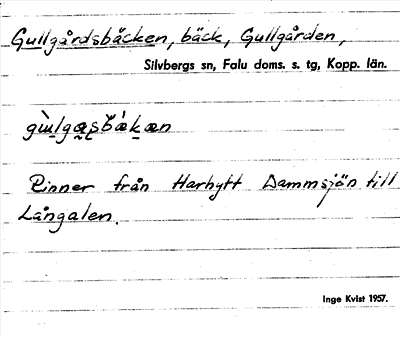 Gullgårdsbäcken, bäck, Gullgården,
Silvbergs sn, Falu doms. s. tg, Kopp. län.
Rinner från Harhytt Dammsjön till
Långalen.
Inge Kvist 1957.